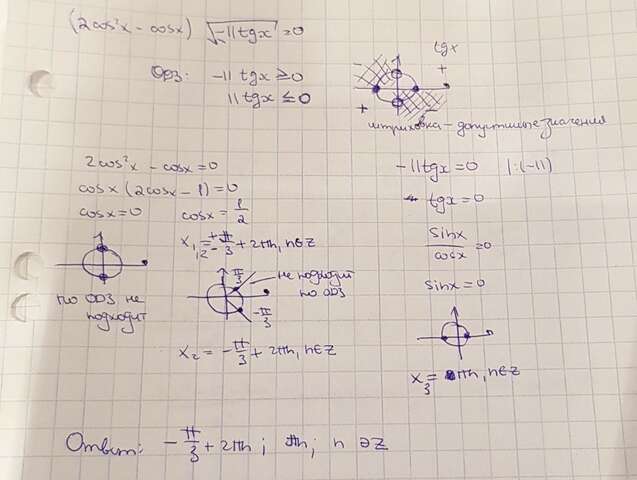 (2cos²x - cosx) √-11tgx = 0
ОДЗ: -11 tgx ≥ 0
11 tgx ≤ 0
tgx
-
+
+
штриховка - допустимые значения
2cos²x - cosx = 0
cosx (2cosx - 1) = 0
cosx = 0 cosx = 1/2
x₁,₂ = ± π/3 + 2πn, n∈Z
по ОДЗ не подходит
π/3
не подходит по ОДЗ
-π/3
x₂ = -π/3 + 2πn, n∈Z
-11tgx = 0 |:(-11)
tgx = 0
sinx/cosx = 0
sinx = 0
x₃ = πn, n∈Z
Ответ: -π/3 + 2πn; πn; n ∈Z